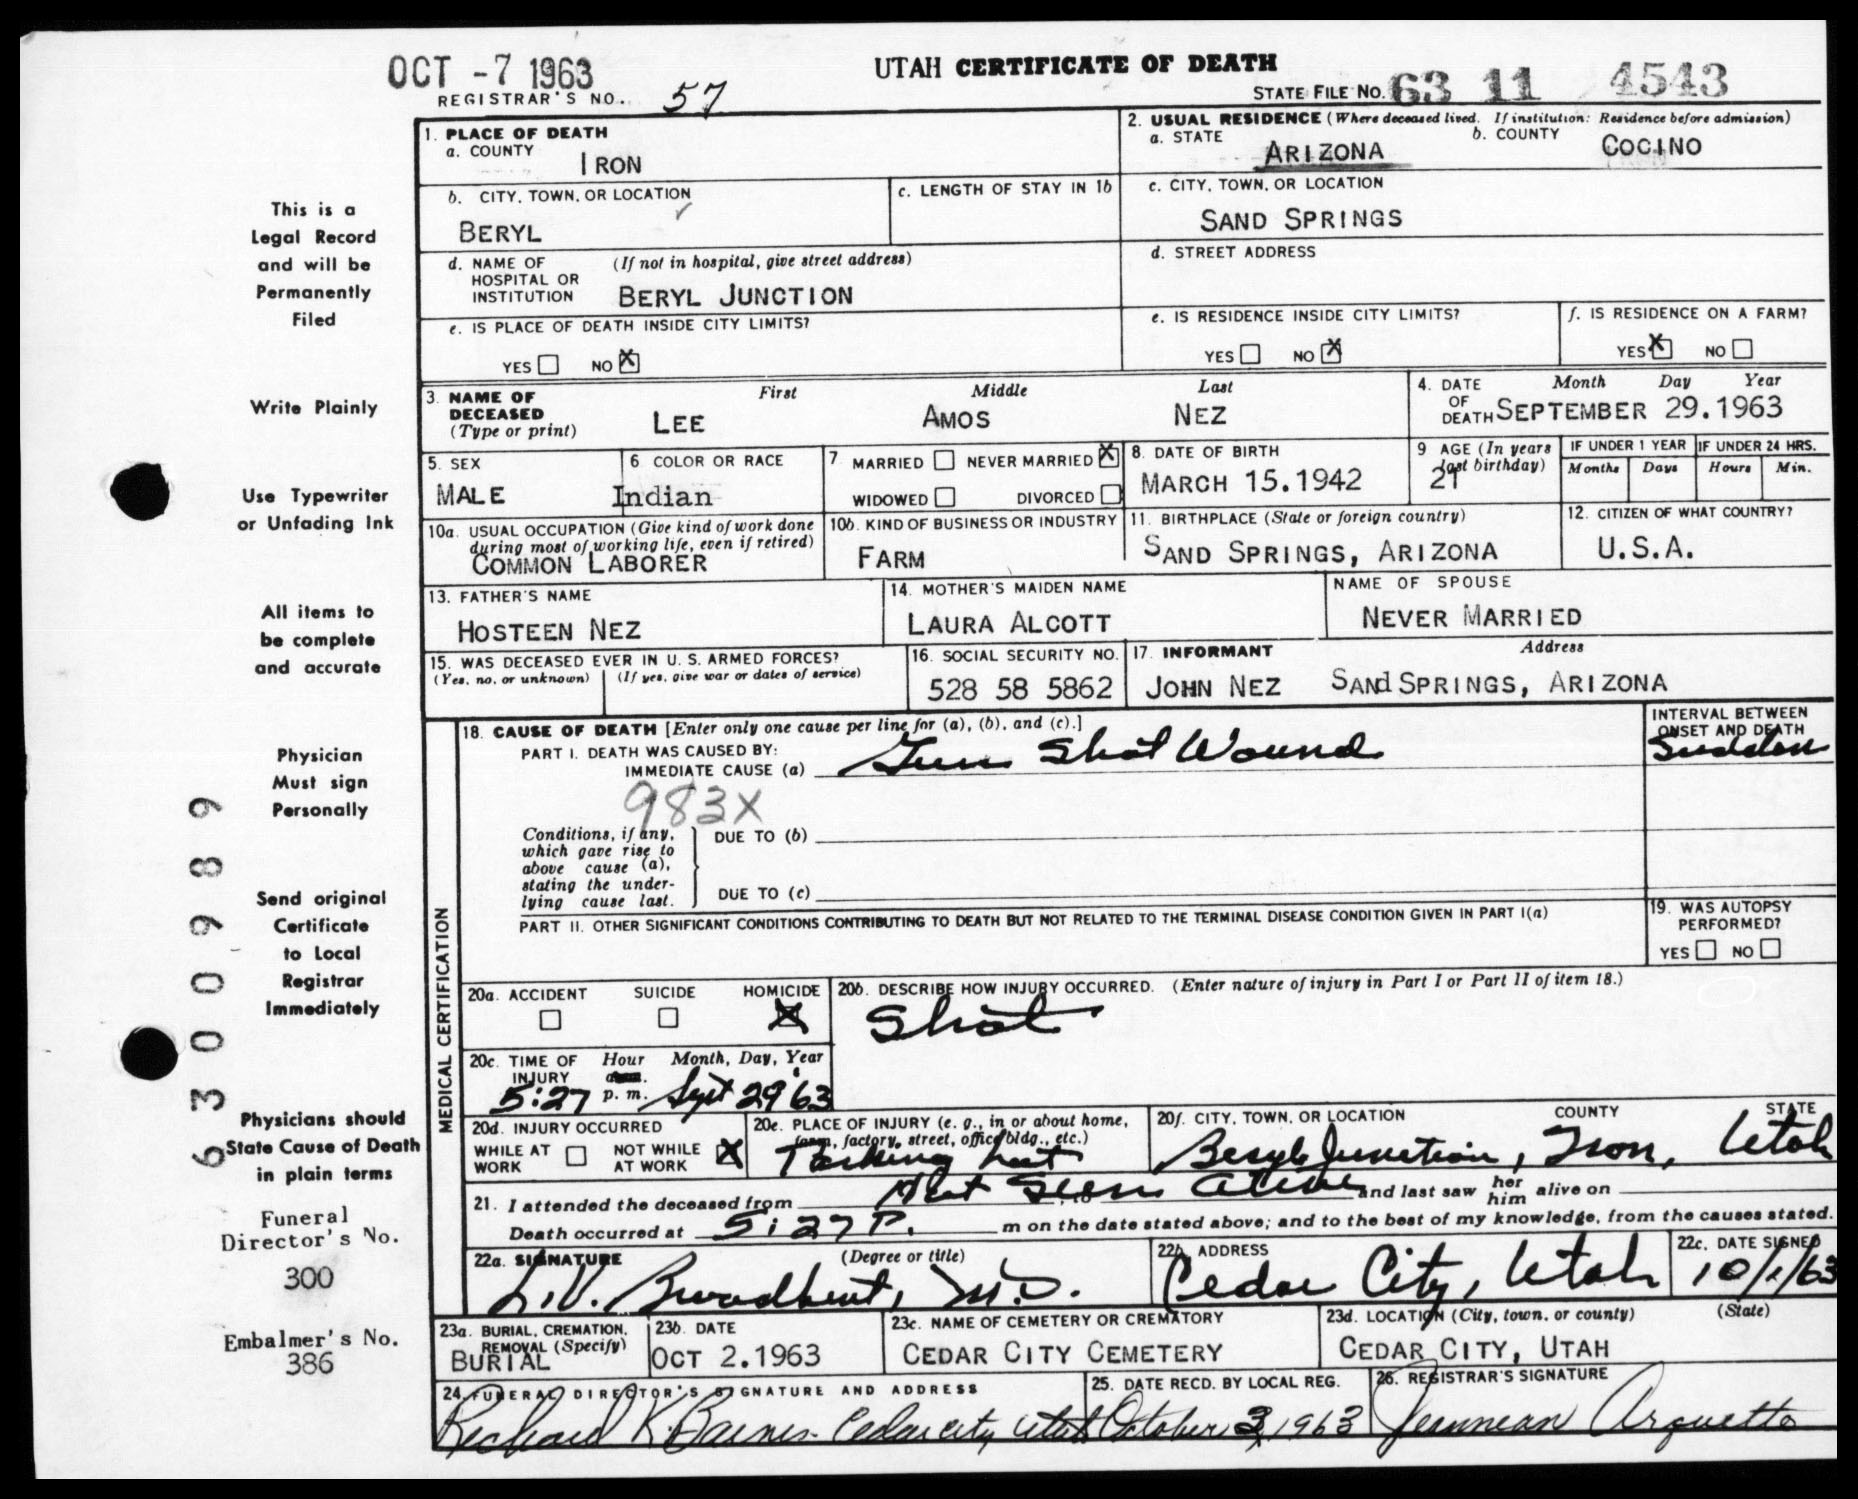 OCT -7 1963
UTAH CERTIFICATE OF DEATH
REGISTRAR'S NO. 57
STATE FILE NO. 63 11 4543
This is a
Legal Record
and will be
Permanently
Filed
Write Plainly
Use Typewriter
or Unfading Ink
All items to
be complete
and accurate
Physician
Must sign
Personally
Send original
Certificate
to Local
Registrar
Immediately
Physicians should
State Cause of Death
in plain terms
Funeral
Director's No.
300
Embalmer's No.
386
6300989
1. PLACE OF DEATH
a. COUNTY
IRON
2. USUAL RESIDENCE (Where deceased lived. If institution: Residence before admission)
a. STATE ARIZONA
b. COUNTY COCINO
b. CITY, TOWN, OR LOCATION
BERYL
c. LENGTH OF STAY IN 1b
c. CITY, TOWN, OR LOCATION
SAND SPRINGS
d. NAME OF HOSPITAL OR INSTITUTION
(If not in hospital, give street address)
BERYL JUNCTION
d. STREET ADDRESS
e. IS PLACE OF DEATH INSIDE CITY LIMITS?
YES NO X
e. IS RESIDENCE INSIDE CITY LIMITS?
YES NO X
f. IS RESIDENCE ON A FARM?
YES X NO
3. NAME OF DECEASED
(Type or print)
First Middle Last
LEE AMOS NEZ
4. DATE OF DEATH
Month Day Year
SEPTEMBER 29.1963
5. SEX
MALE
6. COLOR OR RACE
Indian
7. MARRIED NEVER MARRIED X
WIDOWED DIVORCED
8. DATE OF BIRTH
MARCH 15.1942
9 AGE (In years last birthday)
21
IF UNDER 1 YEAR
Months Days
IF UNDER 24 HRS.
Hours Min.
10a. USUAL OCCUPATION (Give kind of work done
during most of working life, even if retired)
COMMON LABORER
10b. KIND OF BUSINESS OR INDUSTRY
FARM
11. BIRTHPLACE (State or foreign country)
SAND SPRINGS, ARIZONA
12. CITIZEN OF WHAT COUNTRY?
U.S.A.
13. FATHER'S NAME
HOSTEEN NEZ
14. MOTHER'S MAIDEN NAME
LAURA ALCOTT
NAME OF SPOUSE
NEVER MARRIED
15. WAS DECEASED EVER IN U.S. ARMED FORCES?
(Yes, no, or unknown) (If yes, give war or dates of service)
16. SOCIAL SECURITY NO.
528 58 5862
17. INFORMANT Address
JOHN NEZ SANd SPRINGS, ARIZONA
MEDICAL CERTIFICATION
18. CAUSE OF DEATH [Enter only one cause per line for (a), (b), and (c).]
PART I. DEATH WAS CAUSED BY:
IMMEDIATE CAUSE (a) Gun Shot Wound
INTERVAL BETWEEN
ONSET AND DEATH
Sudden
983X
Conditions, if any,
which gave rise to
above cause (a),
stating the under-
lying cause last.
DUE TO (b)
DUE TO (c)
PART II. OTHER SIGNIFICANT CONDITIONS CONTRIBUTING TO DEATH BUT NOT RELATED TO THE TERMINAL DISEASE CONDITION GIVEN IN PART I(a)
19. WAS AUTOPSY
PERFORMED?
YES NO
20a. ACCIDENT SUICIDE HOMICIDE X
20b. DESCRIBE HOW INJURY OCCURRED. (Enter nature of injury in Part I or Part II of item 18.)
Shot
20c. TIME OF INJURY
Hour Month, Day, Year
5:27 p. m. Sept 29 '63
20d. INJURY OCCURRED
WHILE AT WORK NOT WHILE AT WORK X
20e. PLACE OF INJURY (e. g., in or about home,
farm, factory, street, office bldg., etc.)
Parking Lot
20f. CITY, TOWN, OR LOCATION COUNTY STATE
Beryl Junction, Iron, Utah
21. I attended the deceased from Not Seen Alive, to and last saw her him alive on
Death occurred at 5:27 P. m on the date stated above; and to the best of my knowledge, from the causes stated.
22a. SIGNATURE (Degree or title)
L.V. Broadbent, M.D.
22b. ADDRESS
Cedar City, Utah
22c. DATE SIGNED
10/1/63
23a. BURIAL, CREMATION,
REMOVAL (Specify)
BURIAL
23b. DATE
OCT 2.1963
23c. NAME OF CEMETERY OR CREMATORY
CEDAR CITY CEMETERY
23d. LOCATION (City, town, or county) (State)
CEDAR CITY, UTAH
24. FUNERAL DIRECTOR'S SIGNATURE AND ADDRESS
Richard K. Barnes Cedar City, Utah
25. DATE RECD. BY LOCAL REG.
October 3, 1963
26. REGISTRAR'S SIGNATURE
Jeannean Arquetto